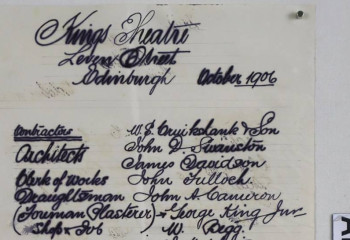 Kings Theatre
Leven Street
Edinburgh October 1906
Contractors W. S. Cruikshank & Son
Architects John D. Swanston
James Davidson
Clerk of Works John Tulloch
Draughtsman John A. Cameron
(Foreman Plasterer) George King Junr
(Shop & Job W. Pegg.